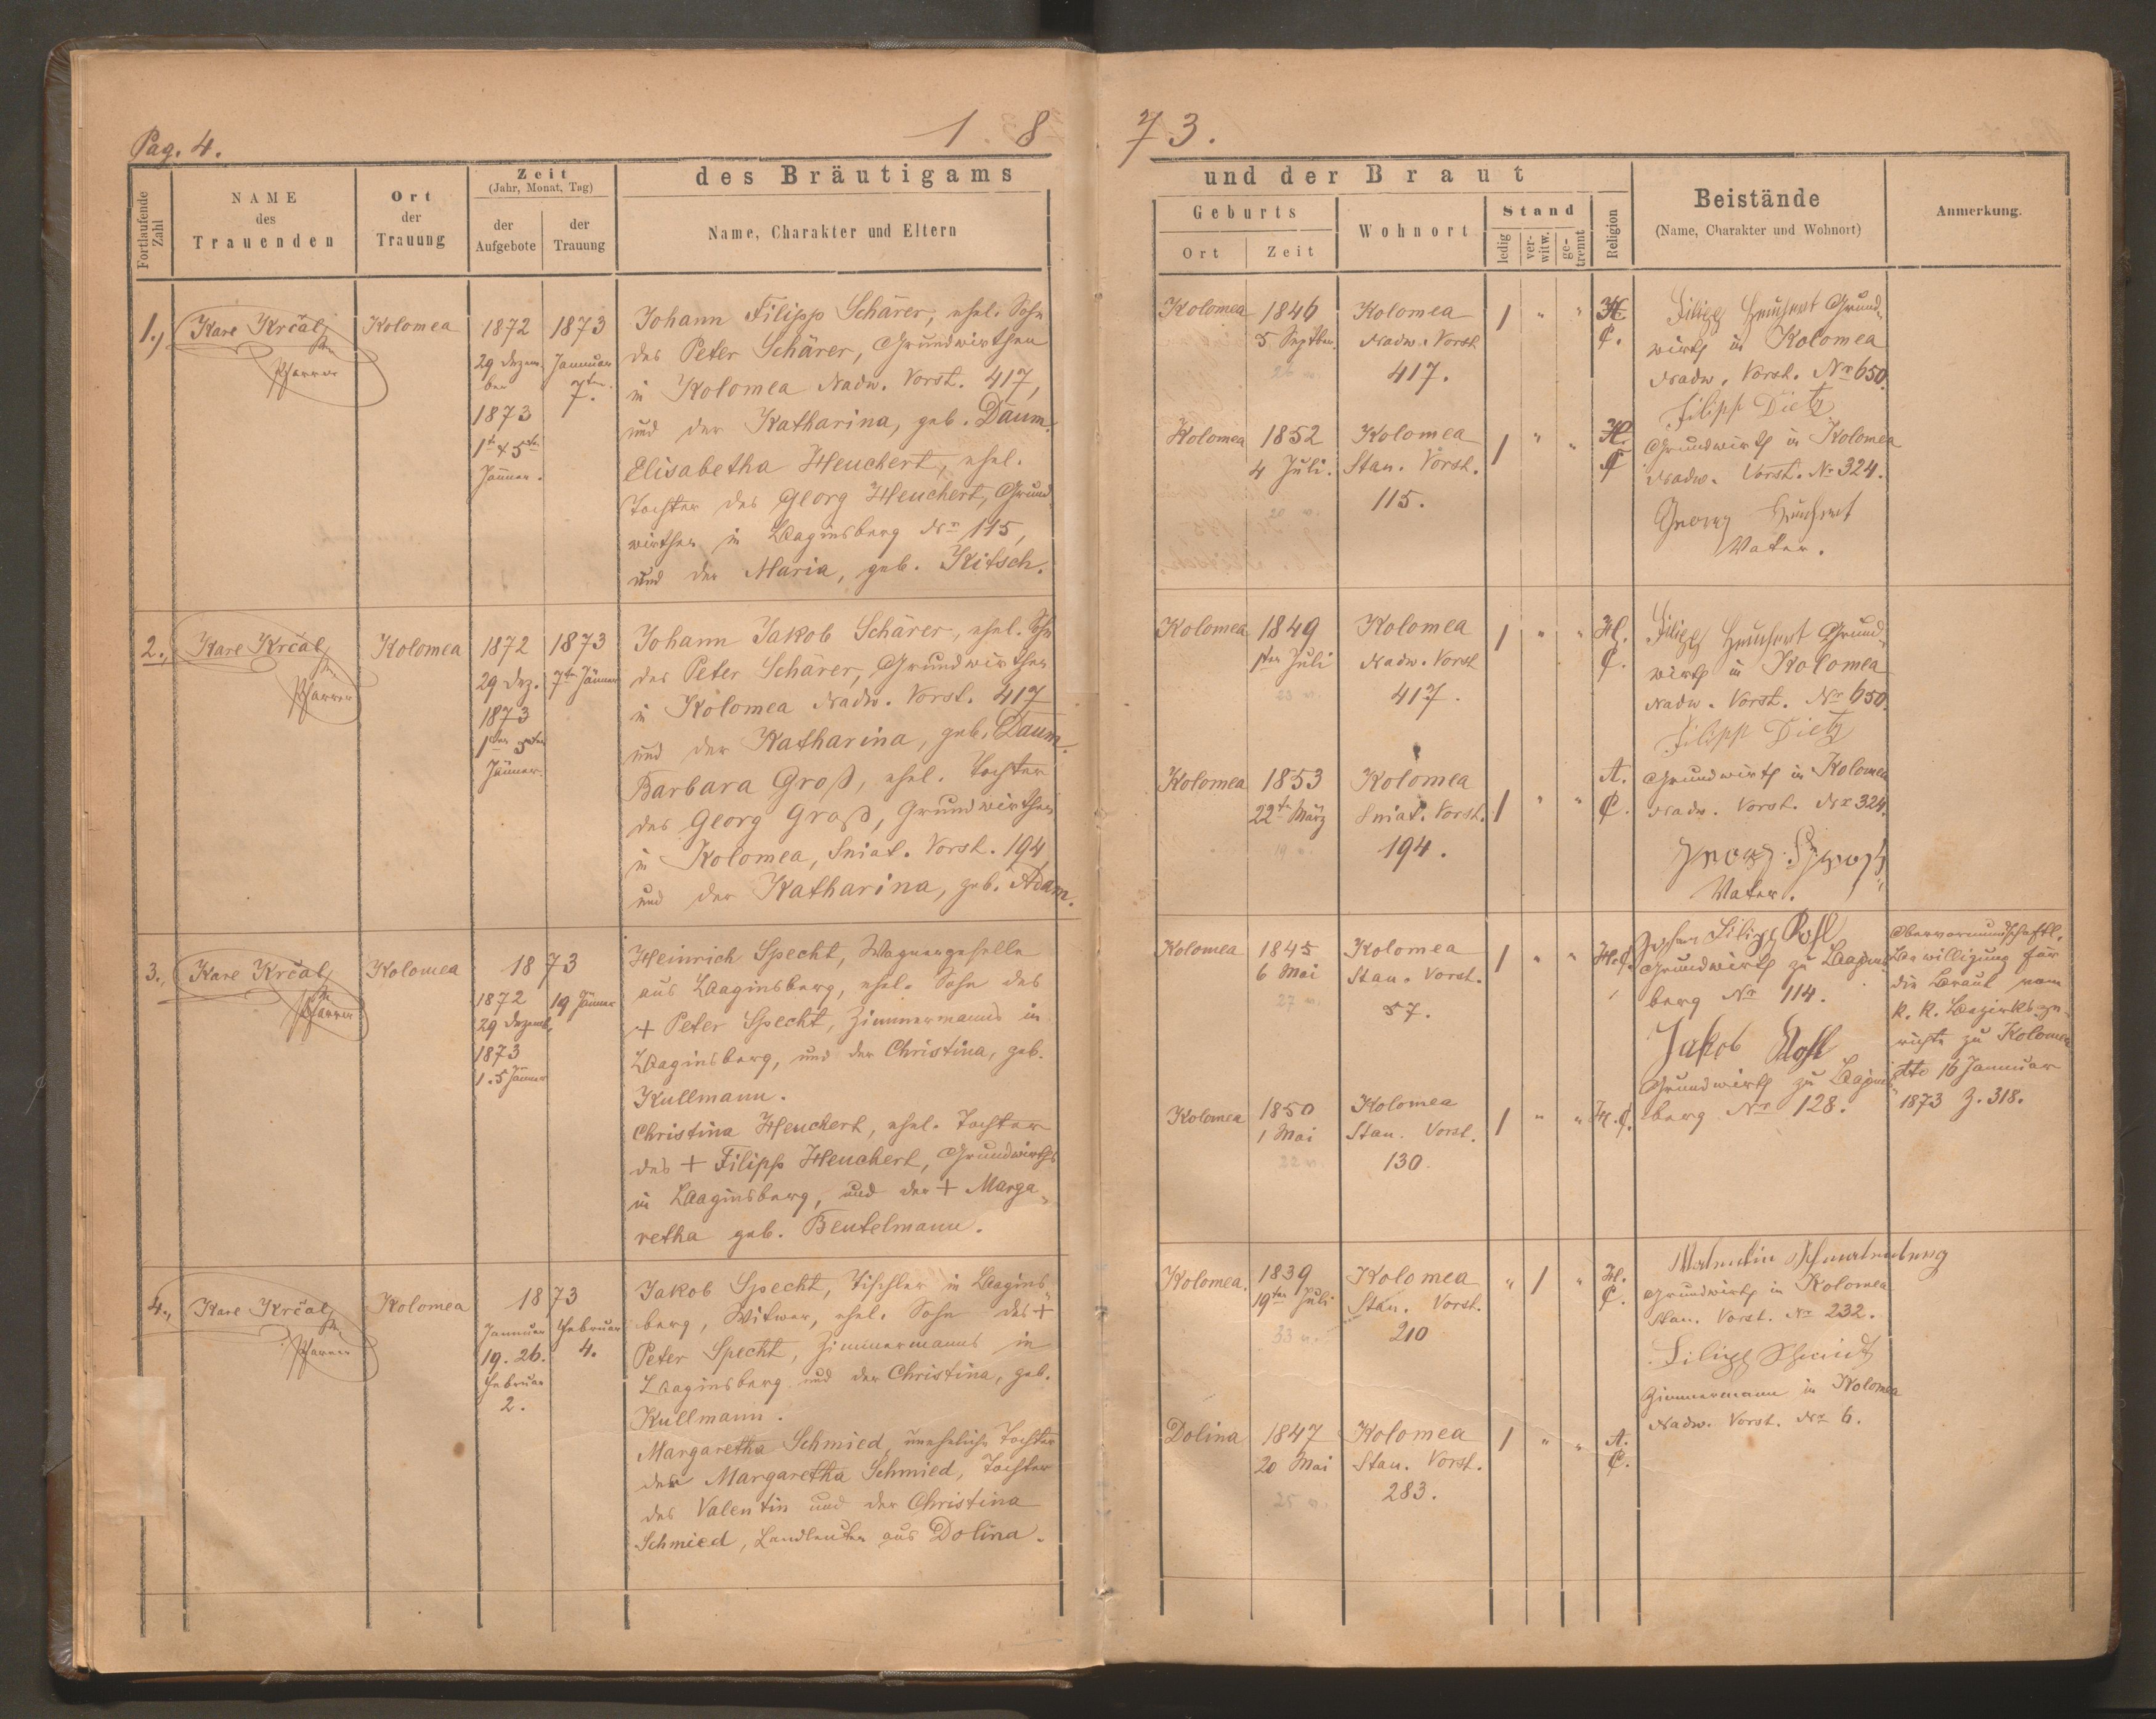 Pag. 4.
1 8
73.
des Bräutigams
und der Braut
Fortlaufende
Zahl
NAME
des
Trauenden
Ort
der
Trauung
Zeit
(Jahr, Monat, Tag)
der
Aufgebote
der
Trauung
Name, Charakter und Eltern
Geburts
Ort
Zeit
Wohnort
Stand
ledig
ver-
witw.
ge-
trennt
Religion
Beistände
(Name, Charakter und Wohnort)
Anmerkung.
1.)
Kare Krčal
Pfarrer
Kolomea
1872
29 Dezem-
ber
1873
1t & 5ten
Jänner.
1873
Januar
7ten.
Johann Filipp Schärer, ehel. Sohn
des Peter Schärer, Grundwirthen
in Kolomea Nadw. Vorst. 417,
und der Katharina, geb. Daum.
Elisabetha Heuchert, ehel.
Tochter des Georg Heuchert, Grund
wirthen in Baginsberg Nr 115,
und der Maria, geb. Kitsch.
Kolomea
1846
5 Septber.
26
Kolomea
Nadw. Vorst
417.
1 " "
H.
C.
Kolomea
1852
4 Juli.
20
Kolomea
Stan. Vorst.
115.
1 " "
H.
C
Filipp Heuchert Grund-
wirth in Kolomea
Nadw. Vorst. Nr 650.
Filipp Dietz
Grundwirth in Kolomea
Nadw. Vorst. Nr 324.
Georg Heuchert
Vater.
2.,
Kare Krčal
Pfarrer
Kolomea
1872
29 Dez.
1873
1ten 5ten
Jänner.
1873
7ten Jänner
Johann Jakob Schärer, ehel. Sohn
des Peter Schärer, Grundwirthen
in Kolomea Nadw. Vorst. 417
und der Katharina, geb. Daum.
Barbara Groß, ehel. Tochter
des Georg Groß, Grundwirthen
in Kolomea, Sniat. Vorst. 194,
und der Katharina, geb. Adam.
Kolomea
1849
1ten Juli
23
Kolomea
Nadw. Vorst
417.
1 " "
H.
C.
Kolomea
1853
22ten März
19
Kolomea
Sniat. Vorst.
194.
1 " "
A.
C.
Filipp Heuchert Grund-
wirth in Kolomea
Nadw. Vorst. Nr 650.
Filipp Dietz
Grundwirth in Kolomea
Nadw. Vorst. Nr 324.
Georg
Vater.
3.,
Kare Krčal
Pfarrer
Kolomea
1873
1872
29 Dezemb.
1873
1. 5 Jänner
19 Jänner
Heinrich Specht, Wagnergeselle
aus Baginsberg, ehel. Sohn des
+ Peter Specht, Zimmermanns in
Baginsberg, und der Christina, geb.
Kullmann.
Christina Heuchert, ehel. Tochter
des + Filipp Heuchert, Grundwirths
in Baginsberg, und der + Marga-
retha geb. Beutelmann.
Kolomea
1845
6 Mai
27
Kolomea
Stan. Vorst.
57.
1 " "
H. C.
Kolomea
1850
1 Mai
22
Kolomea
Stan. Vorst.
130.
1 " "
H. C.
Johan Filipp
Grundwirth zu Bagins-
berg Nr 114.
Jakob
Grundwirth zu Bagins-
berg Nr 128.
Obervormundschaftl.
Bewilligung für
die Braut vom
k. k. Bezirksge-
richte zu Kolomea
dto 16 Januar
1873 Z. 318.
4.,
Kare Krčal
Pfarrer
Kolomea
1873
Januar
19. 26.
Februar
2.
Februar
4.
Jakob Specht, Tischler in Bagins-
berg, Witwer, ehel. Sohn des +
Peter Specht, Zimmermanns in
Baginsberg und der Christina, geb.
Kullmann.
Margaretha Schmied, uneheliche Tochter
der Margaretha Schmied, Tochter
des Valentin und der Christina
Schmied, Landleuten aus Dolina.
Kolomea.
1839
19ten Juli
33
Kolomea
Stan. Vorst.
210
" 1 "
H.
C.
Dolina
1847
20 Mai
25
Kolomea
Stan. Vorst.
283.
1 " "
A.
C.
Grundwirth in Kolomea
Stan. Vorst. Nr 232.
Filipp Schmidt
Zimmermann in Kolomea
Nadw. Vorst. Nr 6.